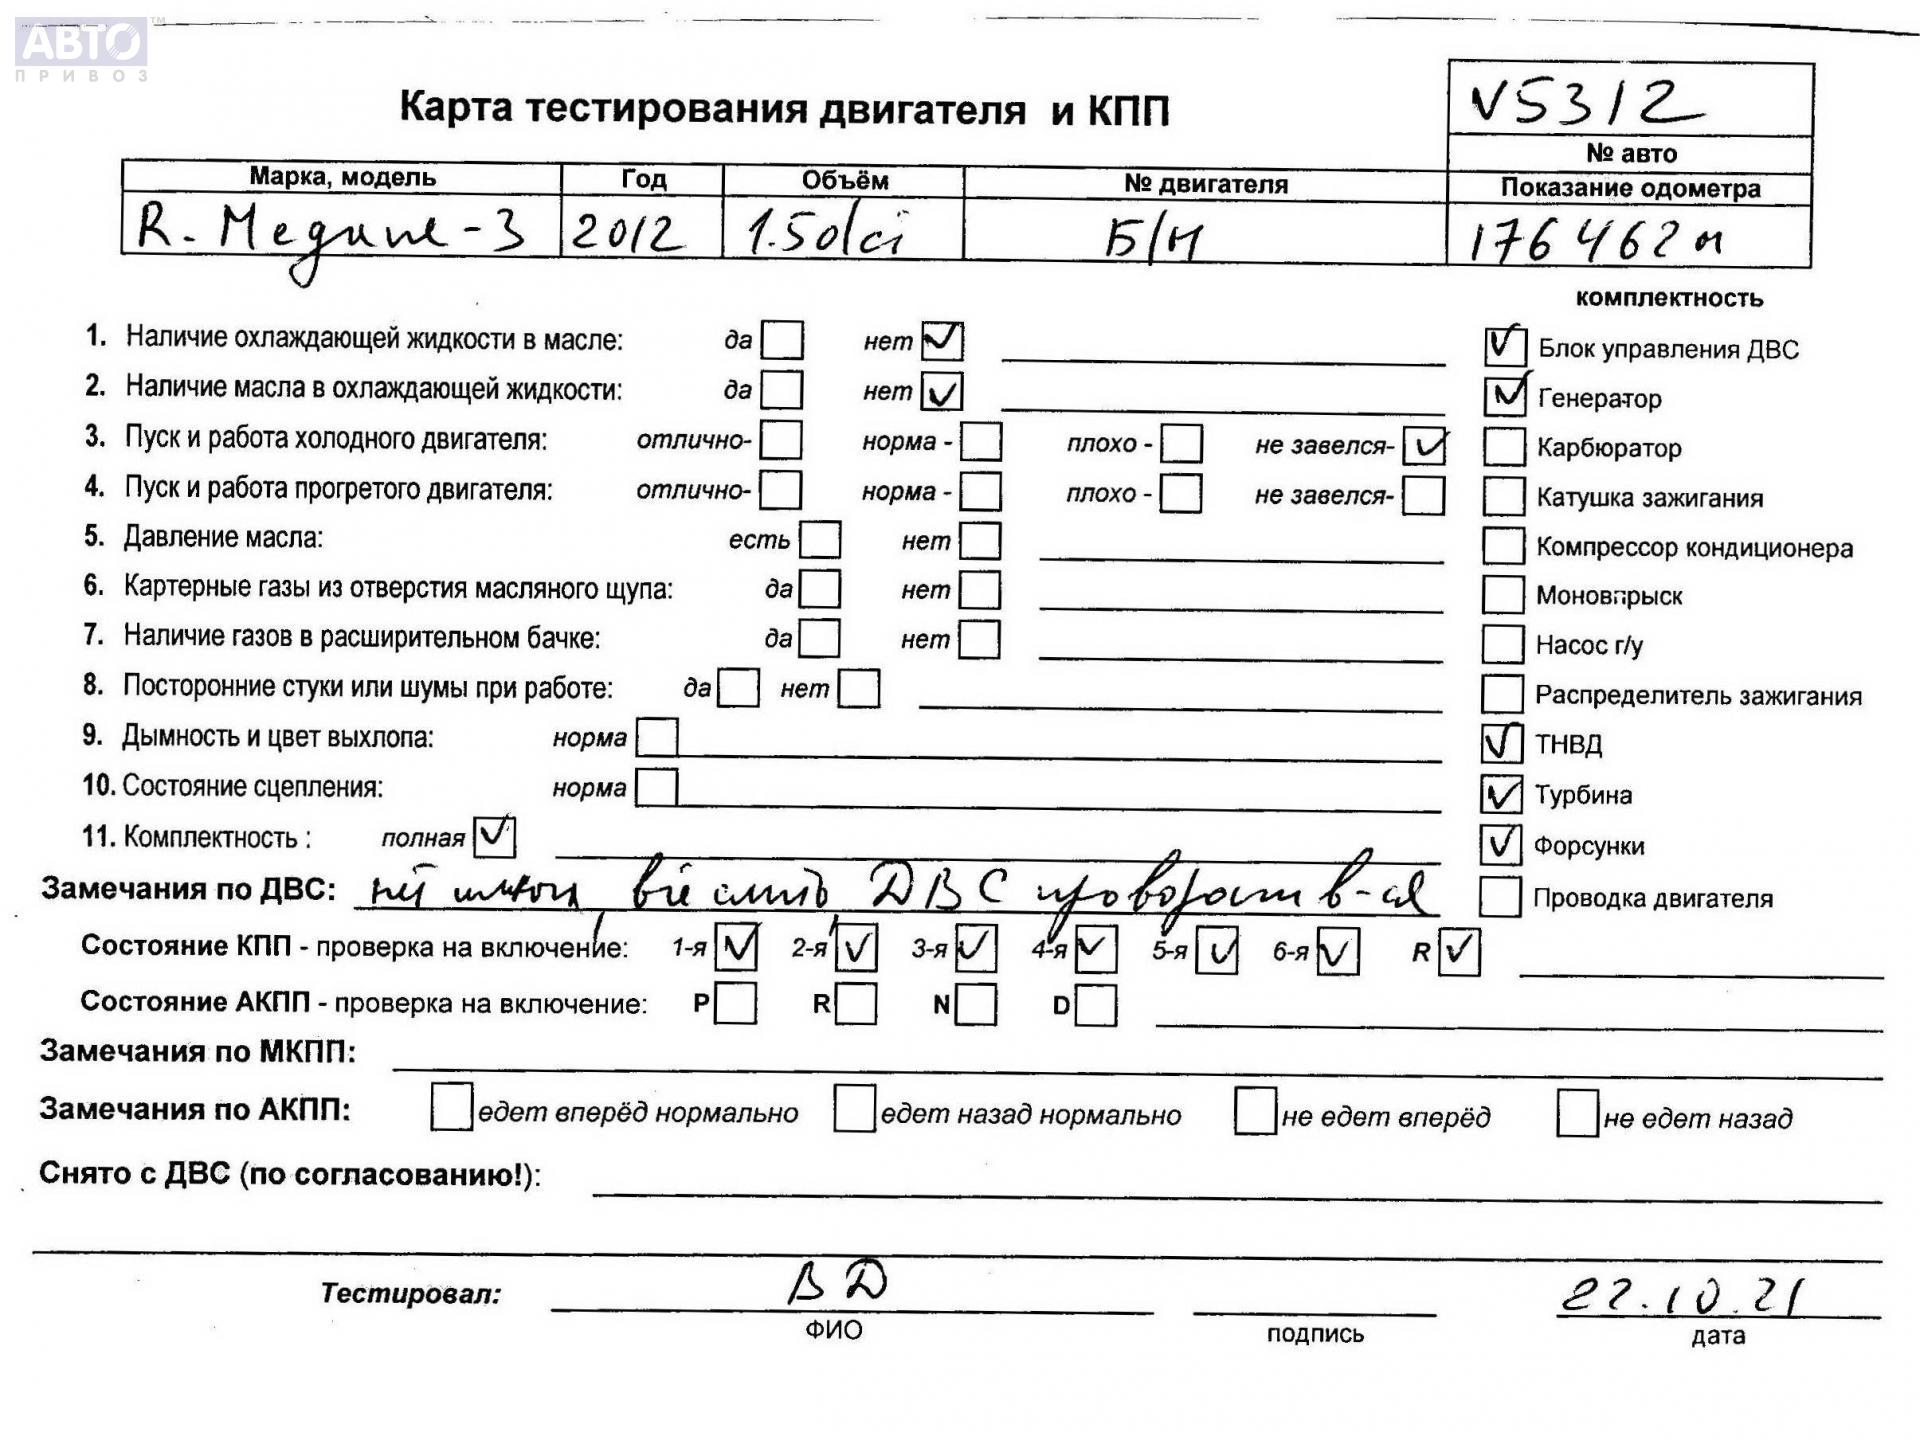 АВТО™
ПРИВОЗ
V5312
Карта тестирования двигателя и КПП
№ авто
Марка, модель Год Объём № двигателя Показание одометра
R. Megane-3 2012 1.5dci Б/Н 176462м
комплектность
1. Наличие охлаждающей жидкости в масле: да нет ✓ Блок управления ДВС ✓
2. Наличие масла в охлаждающей жидкости: да нет ✓ Генератор ✓
3. Пуск и работа холодного двигателя: отлично- норма - плохо - не завелся- ✓ Карбюратор
4. Пуск и работа прогретого двигателя: отлично- норма - плохо - не завелся- Катушка зажигания
5. Давление масла: есть нет Компрессор кондиционера
6. Картерные газы из отверстия масляного щупа: да нет Моновпрыск
7. Наличие газов в расширительном бачке: да нет Насос г/у
8. Посторонние стуки или шумы при работе: да нет Распределитель зажигания
9. Дымность и цвет выхлопа: норма ✓ ТНВД
10. Состояние сцепления: норма ✓ Турбина
11. Комплектность : полная ✓ ✓ Форсунки
Замечания по ДВС: ДВС Проводка двигателя
Состояние КПП - проверка на включение: 1-я ✓ 2-я ✓ 3-я ✓ 4-я ✓ 5-я ✓ 6-я ✓ R ✓
Состояние АКПП - проверка на включение: P R N D
Замечания по МКПП:
Замечания по АКПП: едет вперёд нормально едет назад нормально не едет вперёд не едет назад
Снято с ДВС (по согласованию!):
Тестировал: ВД 22.10.21
ФИО подпись дата